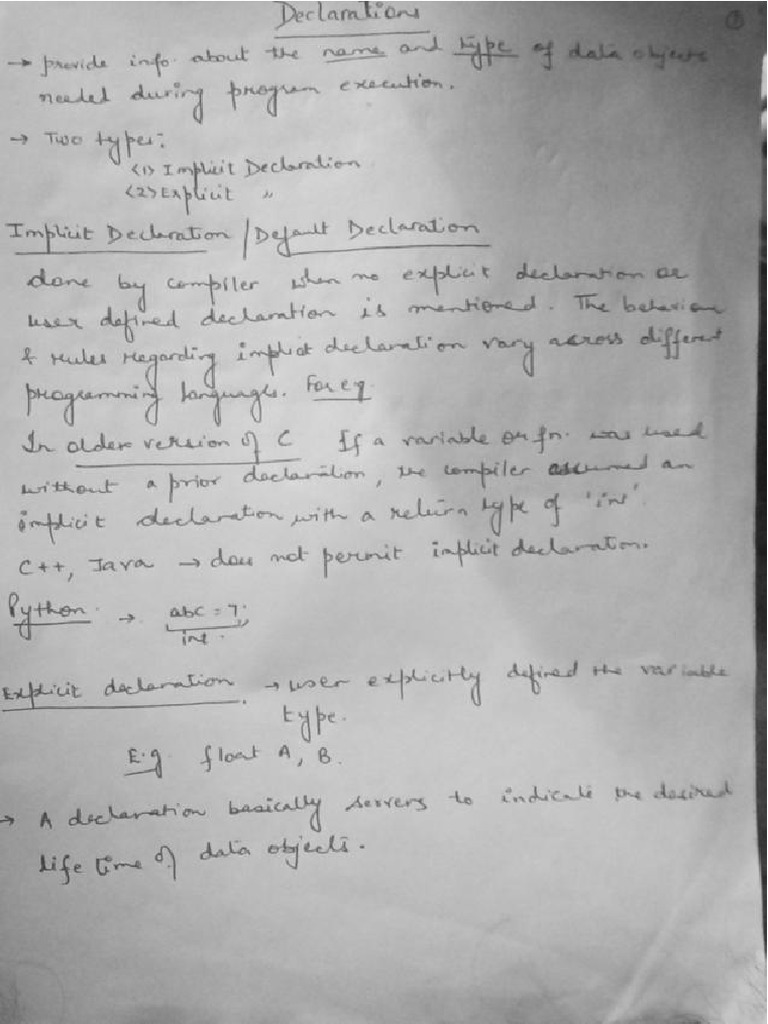 Declarations
→ provide info. about the name and type of data objects
needed during program execution.
→ Two types:
<1> Implicit Declaration
<2> Explicit "
Implicit Declaration / Default Declaration
done by compiler when no explicit declaration or
user defined declaration is mentioned. The behaviour
& rules regarding implicit declaration vary across different
programming languages. For eg.
In older version of C If a variable or fn. was used
without a prior declaration, the compiler assumed an
implicit declaration with a return type of 'int'.
C++, Java → does not permit implicit declaration.
Python → abc = 7;
int.
Explicit declaration. → user explicitly defined the variable
type.
E.g. float A, B.
→ A declaration basically servers to indicate the desired
life time of data objects.